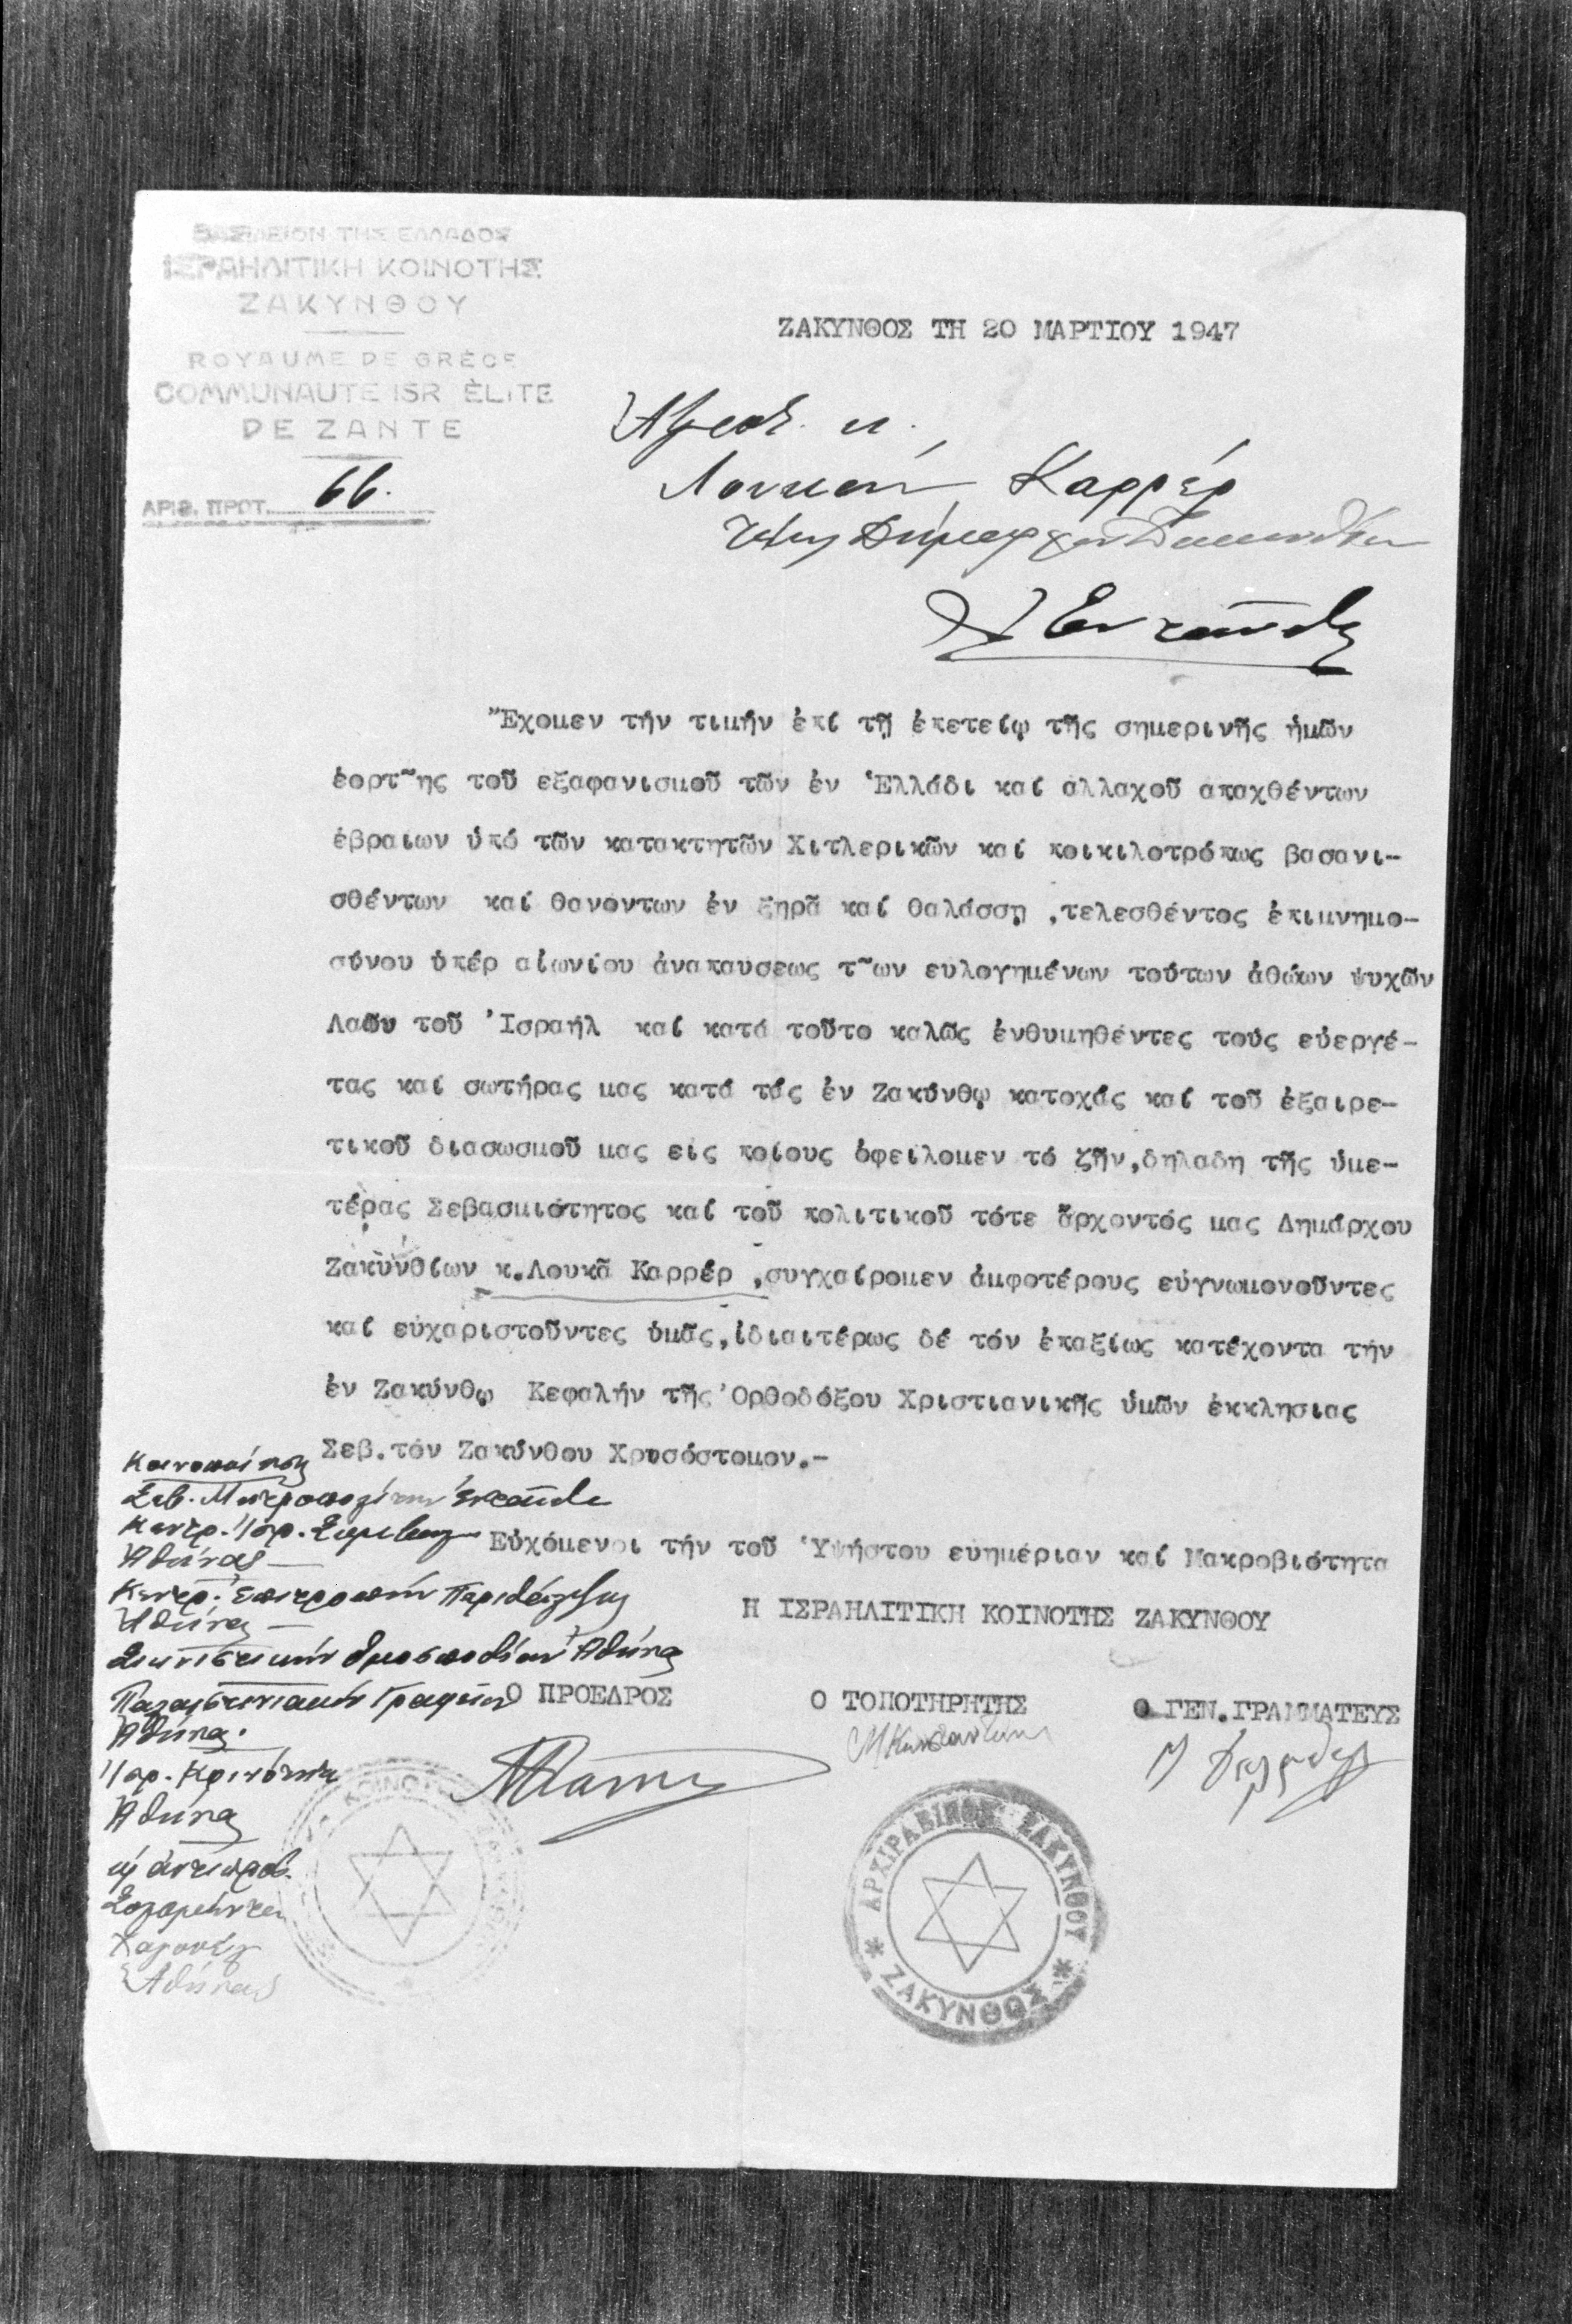 ΒΑΣΙΛΕΙΟΝ ΤΗΣ ΕΛΛΑΔΟΣ
ΙΣΡΑΗΛΙΤΙΚΗ ΚΟΙΝΟΤΗΣ
ΖΑΚΥΝΘΟΥ
ROYAUME DE GRÈCE
COMMUNAUTE ISR ÈLITE
DE ZANTE
ΑΡΙΘ. ΠΡΩΤ. 66.
ΖΑΚΥΝΘΟΣ ΤΗ 20 ΜΑΡΤΙΟΥ 1947
Ἀξιότ. κ.
Λουκᾶν Καρρέρ
τέως Δήμαρχον Ζακυνθίων
Ἐνταῦθα
Ἔχομεν τήν τιμήν ἐπί τῇ ἐπετείῳ τῆς σημερινῆς ἡμῶν
ἑορτ῀ης τοῦ εξαφανισμοῦ τῶν ἐν Ἑλλάδι καί αλλαχοῦ απαχθέντων
ἑβραιων ὑπό τῶν κατακτητῶν Χιτλερικῶν καί ποικιλοτρόπως βασανι-
σθέντων καί θανοντων ἐν ξηρᾶ καί θαλάσση ,τελεσθέντος ἐπιμνημο-
σύνου ὑπέρ αἰωνίου ἀναπαυσεως τ῀ων ευλογημένων τούτων ἀθώων ψυχῶν
Λαῶν τοῦ Ἰσραήλ καί κατά τοῦτο καλῶς ἐνθυμηθέντες τούς εὐεργέ-
τας καί σωτήρας μας κατά τάς ἐν Ζακύνθῳ κατοχάς καί τοῦ ἐξαιρε-
τικοῦ διασωσμοῦ μας εἰς ποίους ὀφείλομεν τό ζῆν,δηλαδη τῆς ὑμε-
τέρας Σεβασμιότητος καί τοῦ πολιτικοῦ τότε ἄρχοντός μας Δημάρχου
Ζακυνθίων κ.Λουκᾶ Καρρέρ ,συγχαίρομεν ἀμφοτέρους εὐγνωμονοῦντες
καί εὐχαριστοῦντες ὑμᾶς,ἰδιαιτέρως δέ τόν ἐπαξίως κατέχοντα τήν
ἐν Ζακύνθῳ Κεφαλήν τῆς Ὀρθοδόξου Χριστιανικῆς ὑμῶν ἐκκλησιας
Σεβ.τόν Ζακύνθου Χρυσόστομον.-
Εὐχόμενοι τήν τοῦ Ὑψήστου ευημέριαν καί Μακροβιότητα
Η ΙΣΡΑΗΛΙΤΙΚΗ ΚΟΙΝΟΤΗΣ ΖΑΚΥΝΘΟΥ
Ο ΠΡΟΕΔΡΟΣ Ο ΤΟΠΟΤΗΡΗΤΗΣ Ο ΓΕΝ.ΓΡΑΜΜΑΤΕΥΣ
Κοινοποίησις
Σεβ. Μητροπολίτην Ἐνταῦθα
Κεντρ. Ἰσρ. Συμβούλιον
Ἀθήνας
Κεντρ. Ἐπιτροπήν Περιθάλψεως
Ἀθήνας
Σιωνιστικήν Ὁμοσπονδίαν Ἀθήνας
Παλαιστινιακόν Γραφεῖον
Ἀθήνας.
Ἰσρ. Κοινότητα
Ἀθήνας
Ἀθήνας
ΑΡΧΙΡΑΒΙΝΟΣ ΖΑΚΥΝΘΟΥ
* ΖΑΚΥΝΘΟΣ *